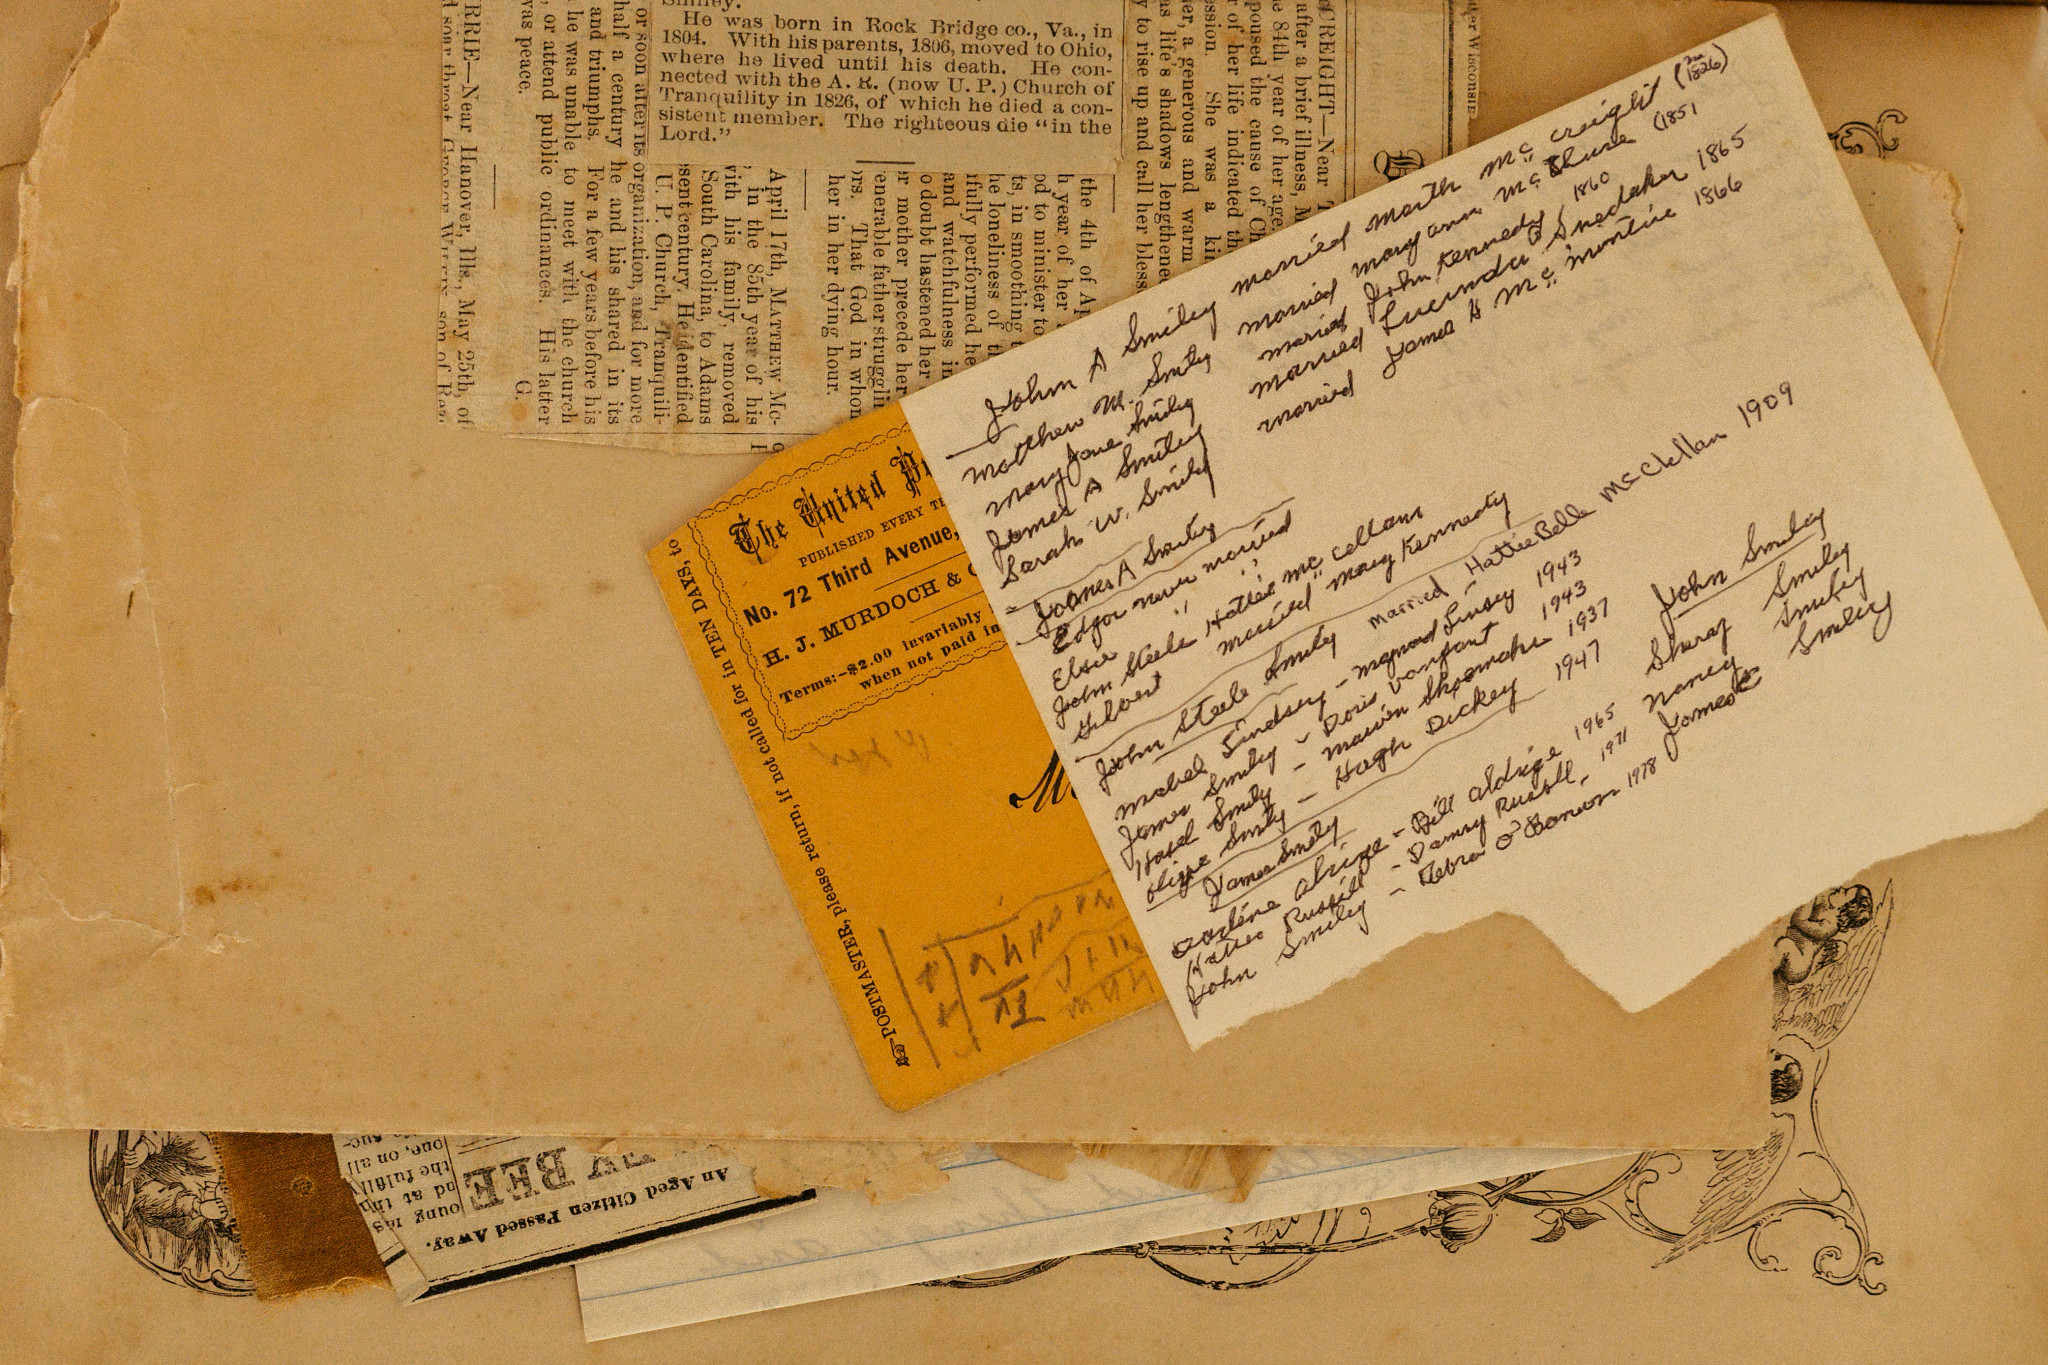 Smiley.
He was born in Rock Bridge co., Va., in
1804. With his parents, 1806, moved to Ohio,
where he lived until his death. He con-
nected with the A. R. (now U. P.) Church of
Tranquility in 1826, of which he died a con-
sistent member. The righteous die "in the
Lord."
RRIE—Near Hanover, Ills., May 25th, of
or soon after its organization, and for more
half a century he and his shared in its
and triumphs. For a few years before his
he was unable to meet with the church
, or attend public ordinances. His latter
was peace. G.
April 17th, MATTHEW Mc-
, in the 85th year of his
with his family, removed
South Carolina, to Adams
sent century. He identified
U. P. Church, Tranquili-
the 4th of Ap
h year of her
od to minister to
ts, in smoothing t
he loneliness of th
fully performed he
and watchfulness in
o doubt hastened her
r mother precede her
enerable father struggli
rs. That God in whom
her in her dying hour.
CREIGHT—Near T
after a brief illness, M
e 84th year of her age.
poused the cause of Ch
r of her life indicated th
ession. She was a kin
er, a generous and warm
as life's shadows lengthene
y to rise up and call her bless
ter Wisconsin
John A Smiley married Marth Mc Creight (1826)
Matthew M. Smily married Mary ann Mc Clure (1851
Mary Jane Smily married John Kennedy 1860
James A Smiley married Lucinda Snedaker 1865
Sarah W. Smily married James A Mc Muntire 1866
James A Smily
Edgar never married
Elsie " "
John Steele Hattie Mc Cellan
Gilbert married Mary Kennedy
John Steele Smily married Hattie Belle McClellan 1909
Mabel Lindsey – Maynard Linsey 1943
James Smily – Doris Vanzant 1943
Hazel Smily – Marvin Shoemaker 1937
Olive Smily – Hugh Dickey 1947
James Smily
Darlene – Bill Aldrige 1965
Russell – Danny Russell – 1971
John Smiley – 1978
John Smiley
Smiley
Nancy Smiley
James E Smiley
The United Pr
PUBLISHED EVERY T
No. 72 Third Avenue,
H. J. MURDOCH & C
Terms:—$2.00 invariably
when not paid in
POSTMASTER, please return, if not called for in TEN DAYS, to
An Aged Citizen Passed Away.
BEE
oung
nd at th
the fulfill
one, on all